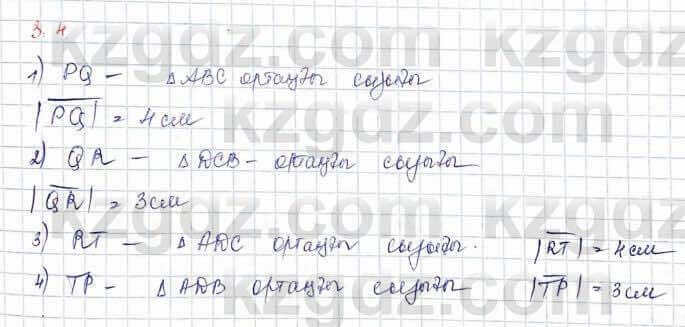 3.4
kzgdz.com kzgdz.com
1) PQ – △ABC ортаңғы сызығы
|PQ| = 4 см
kzgdz.com kzgdz.com
2) QR – △DCB – ортаңғы сызығы
|QR| = 3 см
kzgdz.com kzgdz.com
3) RT – △ADC ортаңғы сызығы. |RT| = 4 см
4) TP – △ADB ортаңғы сызығы |TP| = 3 см
kzgdz.com kzgdz.com